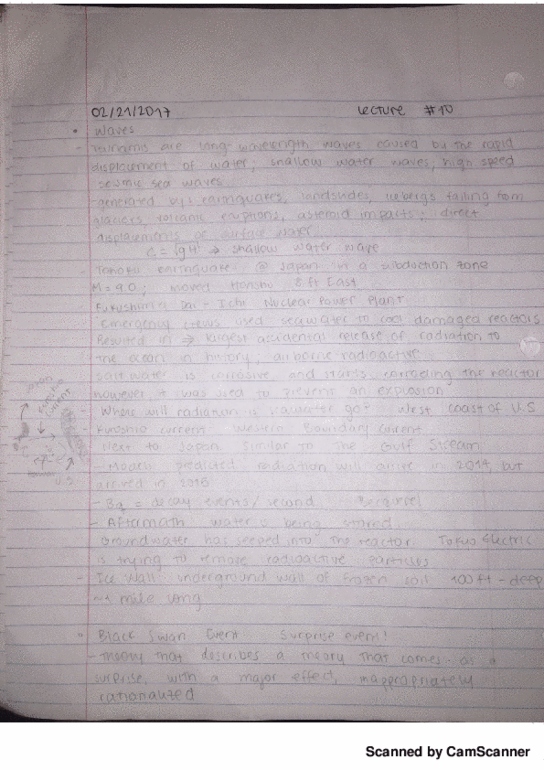 02/21/2017 Lecture #10
• Waves
- Tsunamis are long wavelength waves caused by the rapid
displacement of water; shallow water waves, high speed
seismic sea waves
- generated by: earthquakes, landslides, icebergs falling from
glaciers, volcanic eruptions, asteroid impacts; direct
displacements of surface water
C = √gH → shallow water wave
- Tohoku earthquake @ Japan in a subduction zone
M = 9.0; moved Honshu 8 ft East
- Fukushima Dai-Ichi Nuclear Power Plant
- Emergency crews used seawater to cool damaged reactors
Resulted in → largest accidental release of radiation to
the ocean in history; airborne radioactive
- salt water is corrosive and starts corroding the reactor
however it was used to prevent an explosion
- Where will radiation in seawater go? West coast of U.S
- Kuroshio current - Western Boundary Current
- Next to Japan similar to the Gulf Stream
- Models predicted radiation will arrive in 2014, but
arrived in 2015
- Bq = decay events/second Becquerel
- Aftermath water is being stored
Groundwater has seeped into the reactor. Tokyo Electric
is trying to remove radioactive particles
- Ice Wall: underground wall of frozen soil 100 ft-deep
~1 mile long
• Black Swan Event Surprise event!
- Theory that describes a theory that comes as a
surprise, with a major effect, inappropriately
rationalized
U.S
Scanned by CamScanner